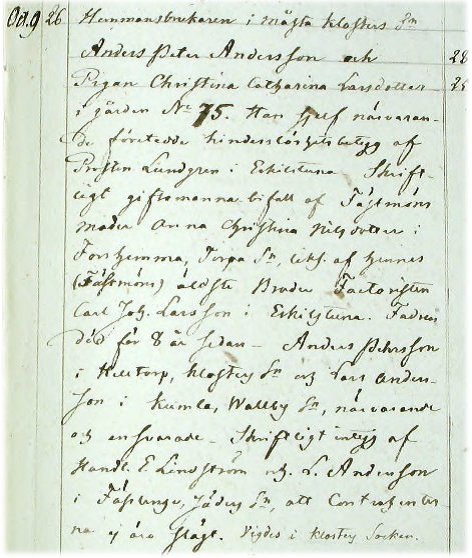 Oct. 9 26 Hemmansbrukaren i Mästa Klosters Sn
Anders Peter Andersson och 28
Pigan Christina Catharina Larsdotter 25
i gården No 75. Han sjelf närvaran-
de företedde hinderslöshetsbetyg af
Prosten Lundgren i Eskilstuna Skrift-
ligt giftomanna bifall af Fästmöns
Moder Anna Christina Nilsdotter i
Forshemma, Torpa Sn, liks. af hennes
(Fästmöns) äldste Broder Factoristen
Carl Joh. Larsson i Eskilstuna. Fadren
död för 8 år sedan – Anders Pehrsson
i Helltorp, Klosters Sn och Lars Anders-
son i Kumla, Wallby Sn, närvarande
och ansvarade – Skriftligt intyg af
Handl. E Lindström och L. Andersson
i Sn, att Contrahenter
na ej äro skägt. Vigdes i Klosters Socken.